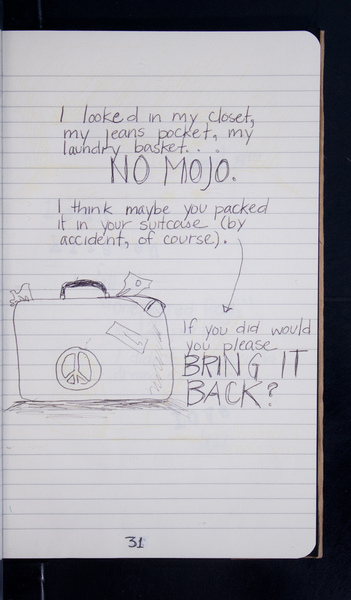 I looked in my closet,
my jeans pocket, my
laundry basket. . .
NO MOJO.
I think maybe you packed
it in your suitcase (by
accident, of course).
If you did would
you please
BRING IT
BACK?
31